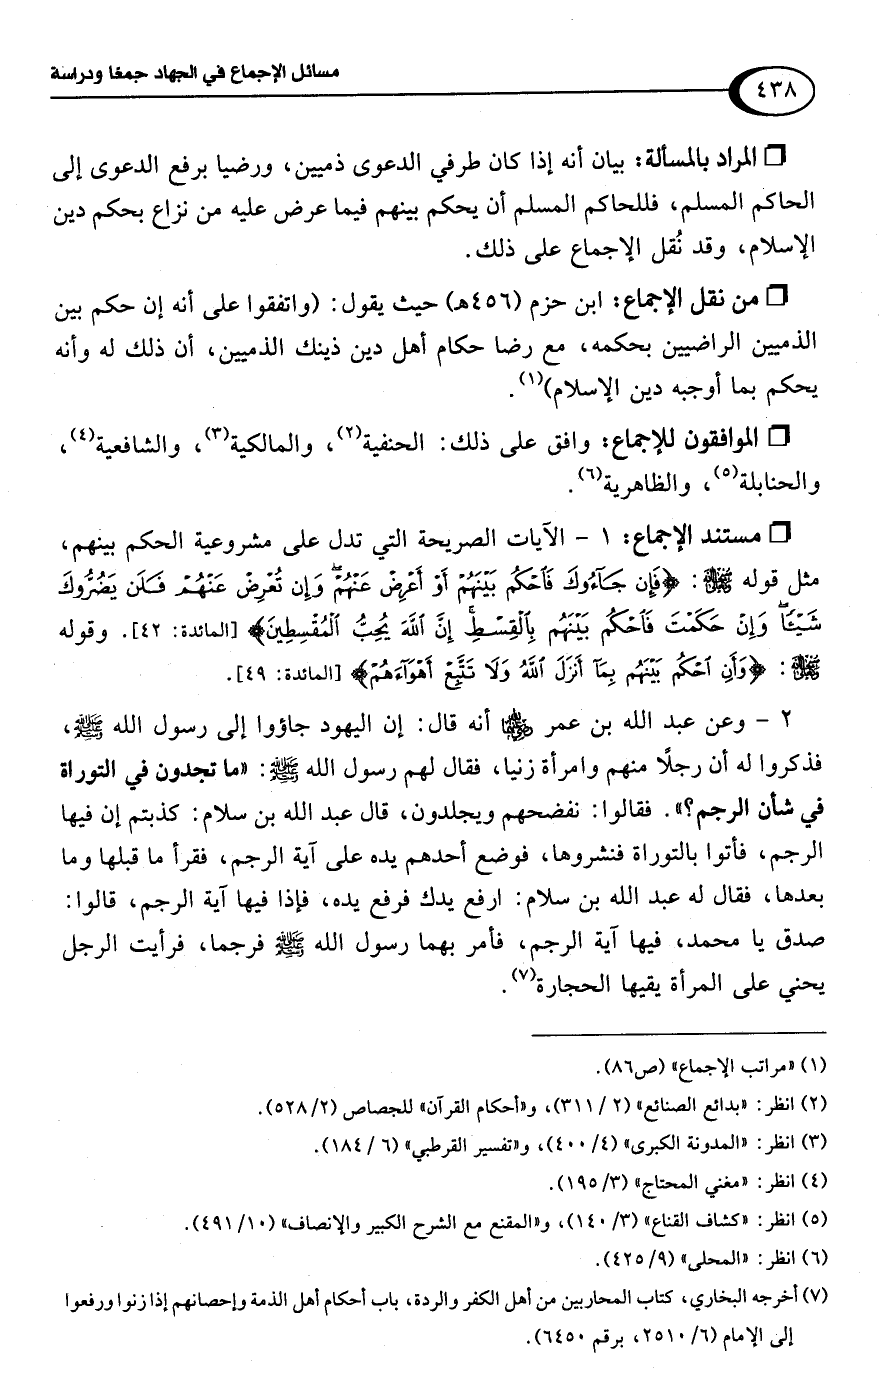 مسائل الإجماع في الجهاد جمعًا ودراسة
٤٣٨
❒ المراد بالمسألة: بيان أنه إذا كان طرفي الدعوى ذميين، ورضيا برفع الدعوى إلى
الحاكم المسلم، فللحاكم المسلم أن يحكم بينهم فيما عرض عليه من نزاع بحكم دين
الإسلام، وقد نُقل الإجماع على ذلك.
❒ من نقل الإجماع: ابن حزم (٤٥٦هـ) حيث يقول: (واتفقوا على أنه إن حكم بين
الذميين الراضيين بحكمه، مع رضا حكام أهل دين ذينك الذميين، أن ذلك له وأنه
يحكم بما أوجبه دين الإسلام)(١).
❒ الموافقون للإجماع: وافق على ذلك: الحنفية(٢)، والمالكية(٣)، والشافعية(٤)،
والحنابلة(٥)، والظاهرية(٦).
❒ مستند الإجماع: ١ - الآيات الصريحة التي تدل على مشروعية الحكم بينهم،
مثل قوله ﷻ: ﴿فَإِن جَآءُوكَ فَٱحْكُم بَيْنَهُمْ أَوْ أَعْرِضْ عَنْهُمْ ۖ وَإِن تُعْرِضْ عَنْهُمْ فَلَن يَضُرُّوكَ
شَيْـًٔا ۖ وَإِنْ حَكَمْتَ فَٱحْكُم بَيْنَهُم بِٱلْقِسْطِ ۚ إِنَّ ٱللَّهَ يُحِبُّ ٱلْمُقْسِطِينَ﴾ [المائدة: ٤٢]. وقوله
ﷻ: ﴿وَأَنِ ٱحْكُم بَيْنَهُم بِمَآ أَنزَلَ ٱللَّهُ وَلَا تَتَّبِعْ أَهْوَآءَهُمْ﴾ [المائدة: ٤٩].
٢ - وعن عبد الله بن عمر رضي الله عنهما أنه قال: إن اليهود جاؤوا إلى رسول الله ﷺ،
فذكروا له أن رجلًا منهم وامرأة زنيا، فقال لهم رسول الله ﷺ: «ما تجدون في التوراة
في شأن الرجم؟». فقالوا: نفضحهم ويجلدون، قال عبد الله بن سلام: كذبتم إن فيها
الرجم، فأتوا بالتوراة فنشروها، فوضع أحدهم يده على آية الرجم، فقرأ ما قبلها وما
بعدها، فقال له عبد الله بن سلام: ارفع يدك فرفع يده، فإذا فيها آية الرجم، قالوا:
صدق يا محمد، فيها آية الرجم، فأمر بهما رسول الله ﷺ فرجما، فرأيت الرجل
يحني على المرأة يقيها الحجارة(٧).
(١) «مراتب الإجماع» (ص٨٦).
(٢) انظر: «بدائع الصنائع» (٢/ ٣١١)، و«أحكام القرآن» للجصاص (٥٢٨/٢).
(٣) انظر: «المدونة الكبرى» (٤/ ٤٠٠)، و«تفسير القرطبي» (٦/ ١٨٤).
(٤) انظر: «مغني المحتاج» (٣/ ١٩٥).
(٥) انظر: «كشاف القناع» (٣/ ١٤٠)، و«المقنع مع الشرح الكبير والإنصاف» (١٠/ ٤٩١).
(٦) انظر: «المحلى» (٩/ ٤٢٥).
(٧) أخرجه البخاري، كتاب المحاربين من أهل الكفر والردة، باب أحكام أهل الذمة وإحصانهم إذا زنوا ورفعوا
إلى الإمام (٦/ ٢٥١٠، برقم ٦٤٥٠).